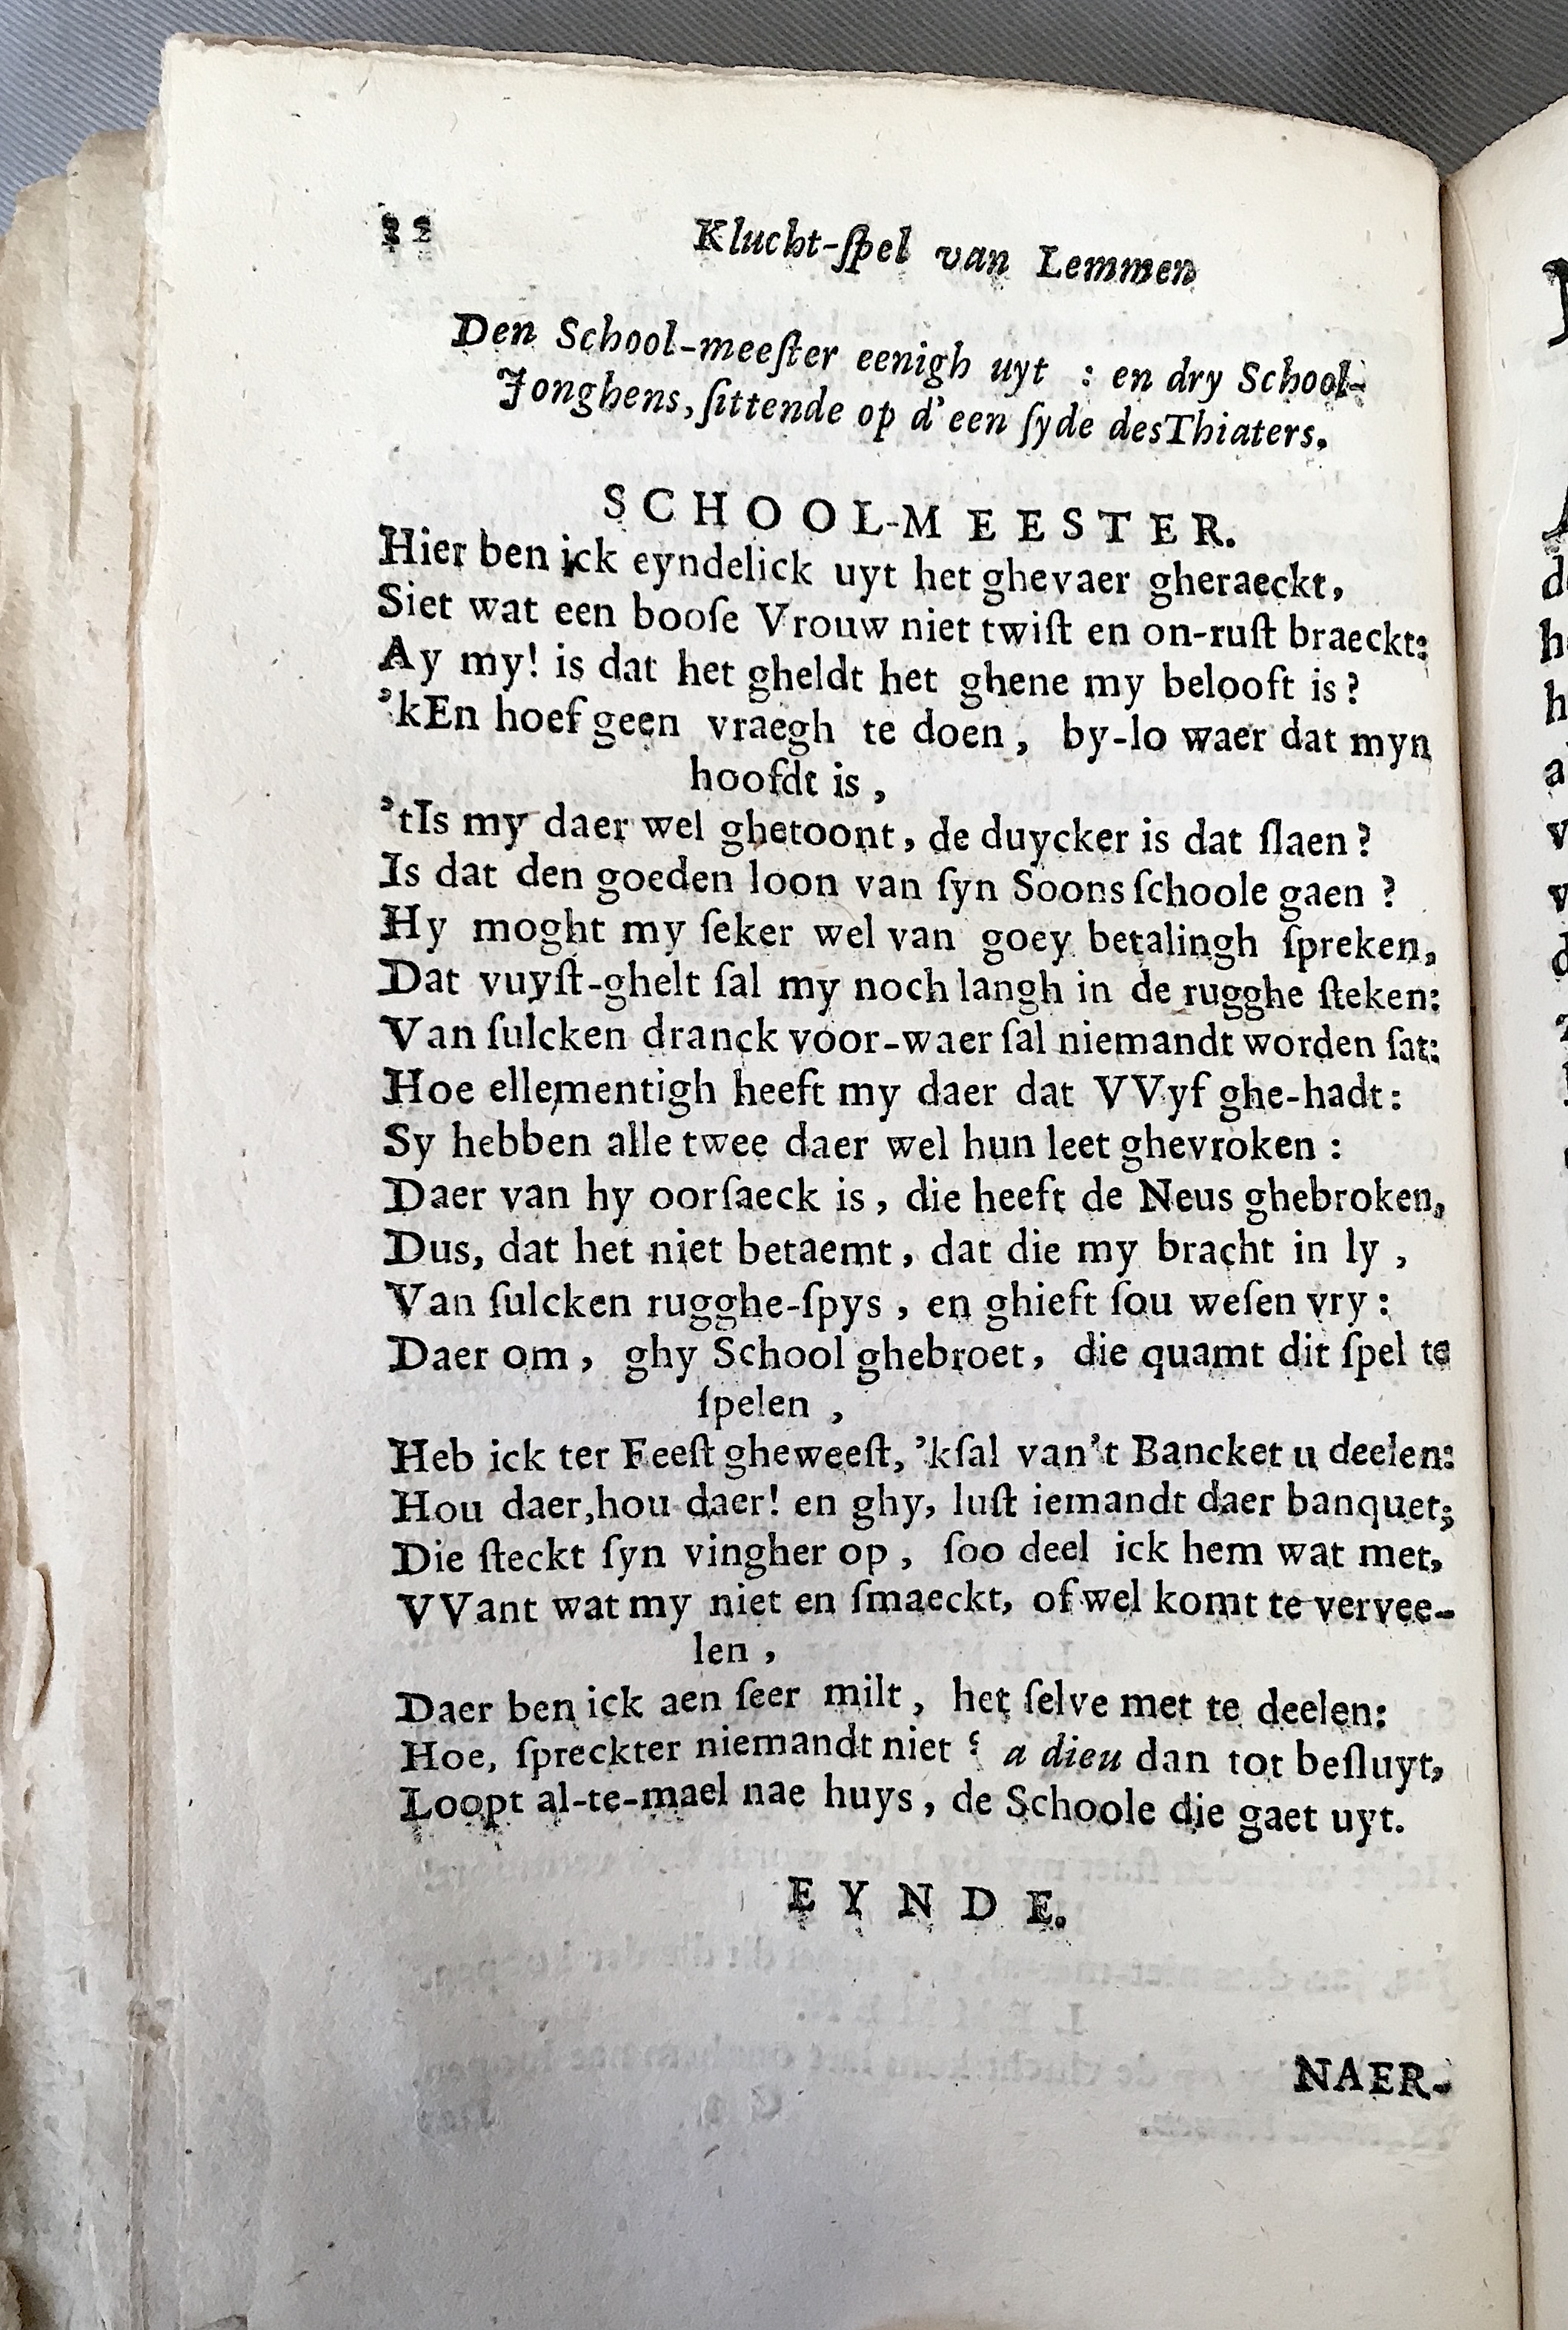 22 Klucht-ſpel van Lemmen
Den School-meeſter eenigh uyt : en dry School-
Jonghens, ſittende op d'een ſyde desThiaters.
SCHOOL-MEESTER.
Hier ben ick eyndelick uyt het ghevaer gheraeckt,
Siet wat een booſe Vrouw niet twiſt en on-ruſt braeckt:
Ay my! is dat het gheldt het ghene my belooft is?
'kEn hoef geen vraegh te doen, by-lo waer dat myn
hoofdt is,
'tIs my daer wel ghetoont, de duycker is dat ſlaen?
Is dat den goeden loon van ſyn Soons ſchoole gaen?
Hy moght my ſeker wel van goey betalingh ſpreken,
Dat vuyſt-ghelt ſal my noch langh in de rugghe ſteken:
Van ſulcken dranck voor-waer ſal niemandt worden ſat:
Hoe ellementigh heeft my daer dat VVyf ghe-hadt:
Sy hebben alle twee daer wel hun leet ghevroken:
Daer van hy oorſaeck is, die heeft de Neus ghebroken,
Dus, dat het niet betaemt, dat die my bracht in ly,
Van ſulcken rugghe-ſpys, en ghieft ſou weſen vry:
Daer om, ghy School ghebroet, die quamt dit ſpel te
ſpelen,
Heb ick ter Feeſt gheweeſt, 'kſal van't Bancket u deelen:
Hou daer,hou daer! en ghy, luſt iemandt daer banquet;
Die ſteckt ſyn vingher op, ſoo deel ick hem wat met,
VVant wat my niet en ſmaeckt, of wel komt te vervee-
len,
Daer ben ick aen ſeer milt, het ſelve met te deelen:
Hoe, ſpreckter niemandt niet ? a dieu dan tot beſluyt,
Loopt al-te-mael nae huys, de Schoole die gaet uyt.
EYNDE.
NAER-